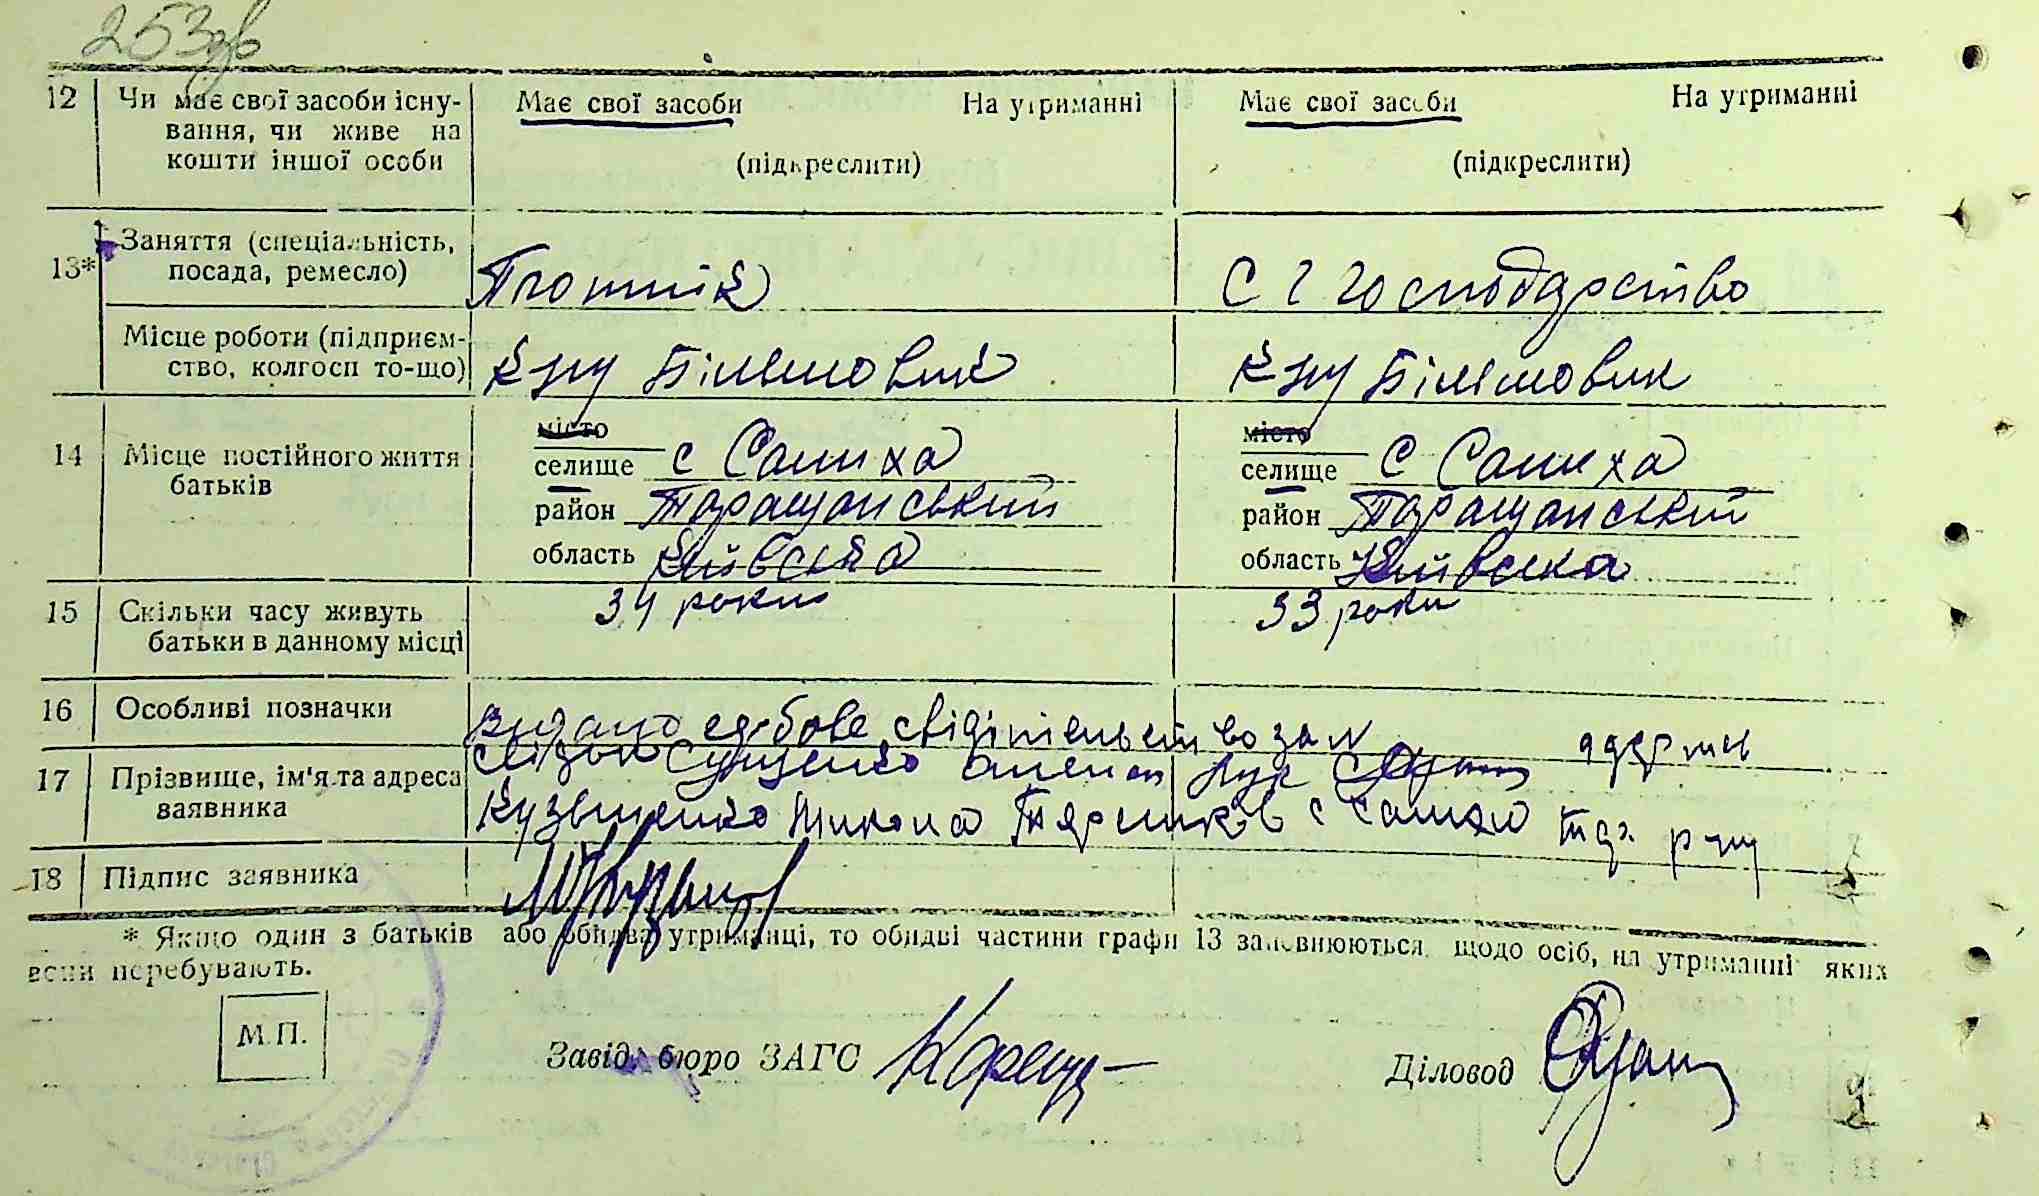 253зв
12 Чи має свої засоби існу- Має свої засоби На утриманні Має свої засоби На утриманні
вання, чи живе на
кошти іншої особи (підкреслити) (підкреслити)
13* Заняття (спеціальність,
посада, ремесло) Плотнік С Г Господарство
Місце роботи (підприєм-
ство, колгосп то-що) Більшовик Більшовик
14 Місце постійного життя
батьків
місто місто
селище с Салиха селище с Салиха
район Таращанський район Таращанський
область Київська область Київська
15 Скільки часу живуть 34 роки 33 роки
батьки в данному місці
16 Особливі позначки Видано свідітельство за N
17 Прізвище, ім'я та адреса Сущенко
заявника Кузьменко Микола с Салиха
18 Підпис заявника
* Якщо один з батьків або обидва утриманці, то обидві частини графи 13 заповнюються щодо осіб, на утриманні яких
вони перебувають.
М.П.
Завід. бюро ЗАГС Діловод